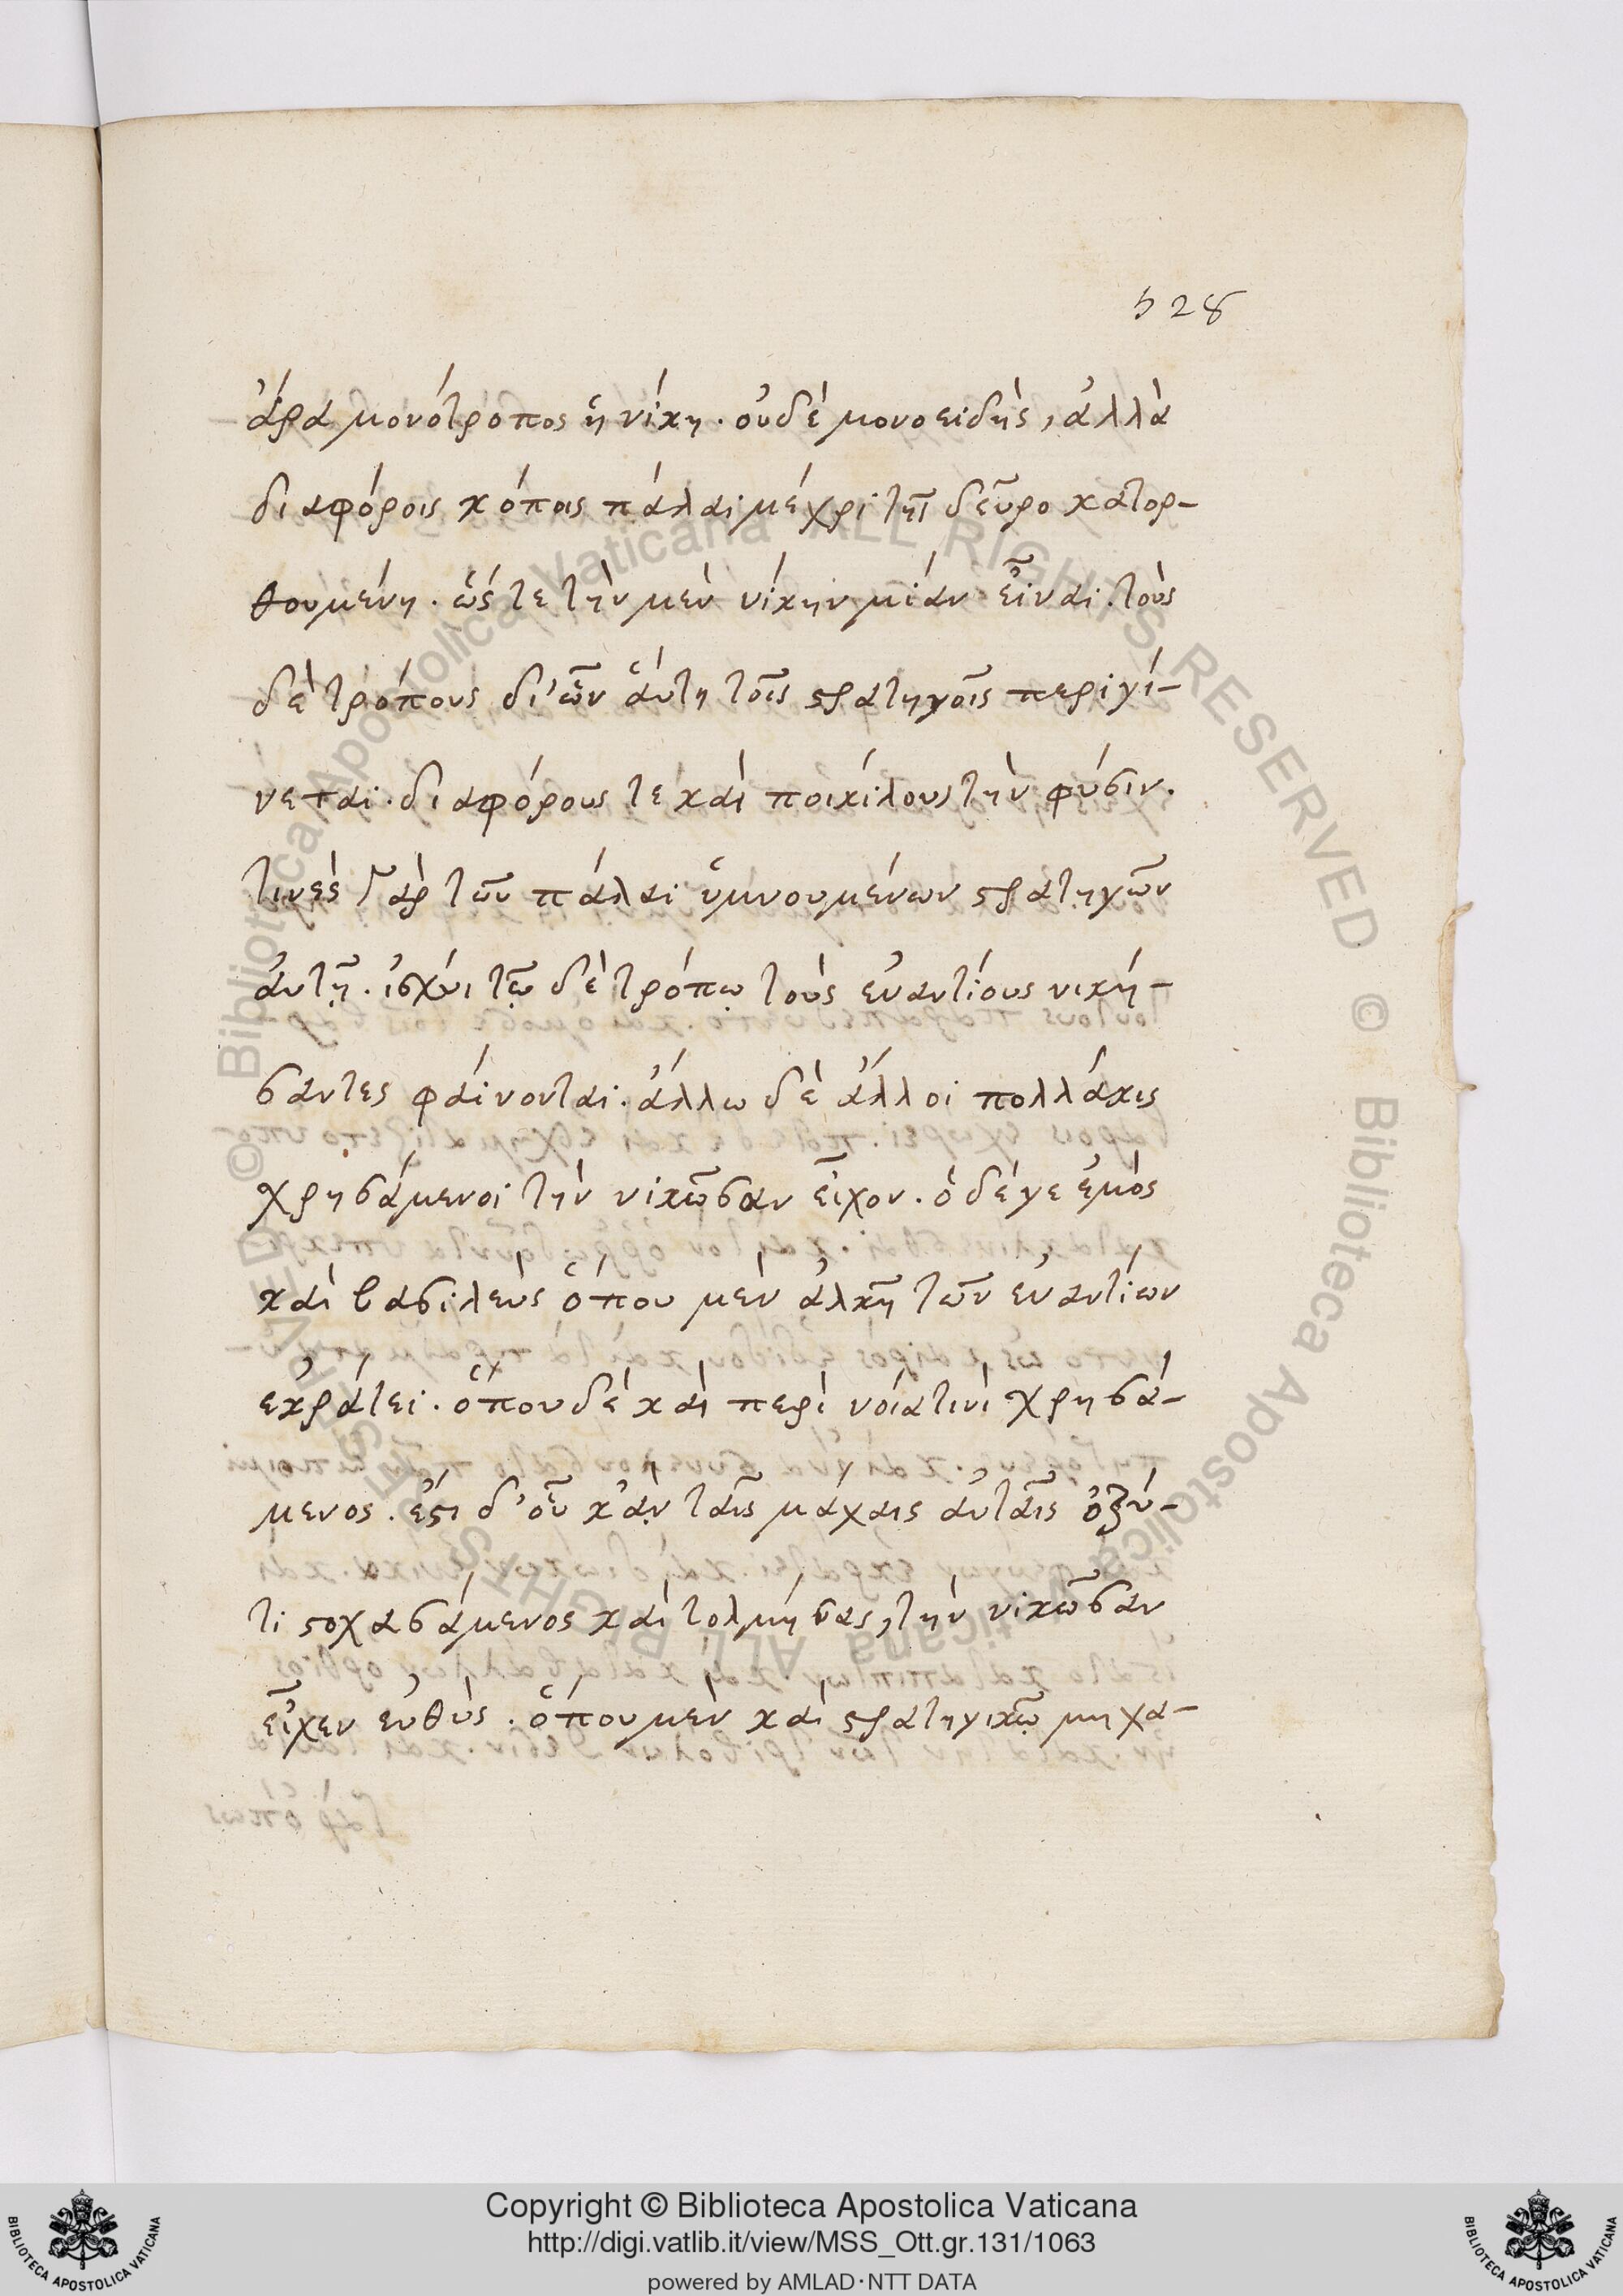 528
ἄρα μονότροπος ἡ νίκη. οὐδὲ μονοειδὴς, ἀλλὰ
διαφόροις κόποις πάλαι μέχρι τῆ δεῦρο κατορ-
θουμένη. ὥς τε τὴν μὲν νίκην μίαν εἶναι. τοὺς
δὲ τρόπους δι' ὧν αὕτη τοῖς στρατηγοῖς περιγί-
νεται. διαφόρους τὲ καὶ ποικίλους τὴν φύσιν.
τινὲς γὰρ τῶν πάλαι ὑμνουμένων στρατηγῶν
αὐτῇ. ἰσχύι τῷ δὲ τρόπῳ τοὺς ἐναντίους νική-
σαντες φαίνονται. ἄλλω δὲ ἄλλοι πολλάκις
χρησάμενοι τὴν νικῶσαν εἶχον. ὁ δέ γε ἐμὸς
καὶ βασιλεὺς ὅπου μὲν ἀλκῆ τῶν ἐναντίων
ἐκράτει. ὅπου δὲ καὶ περὶ νοία τινὶ χρησά-
μενος. ἔστι δ' οὗ κ'ἀν ταῖς μάχαις αὐταῖς ὀξύ-
τι στοχασάμενος καὶ τολμήσας, τὴν νικῶσαν
εἶχεν εὐθύς. ὅπου μὲν καὶ στρατηγικῷ μηχα-
Copyright © Biblioteca Apostolica Vaticana
http://digi.vatlib.it/view/MSS_Ott.gr.131/1063
powered by AMLAD·NTT DATA
BIBLIOTECA APOSTOLICA VATICANA
BIBLIOTECA APOSTOLICA VATICANA